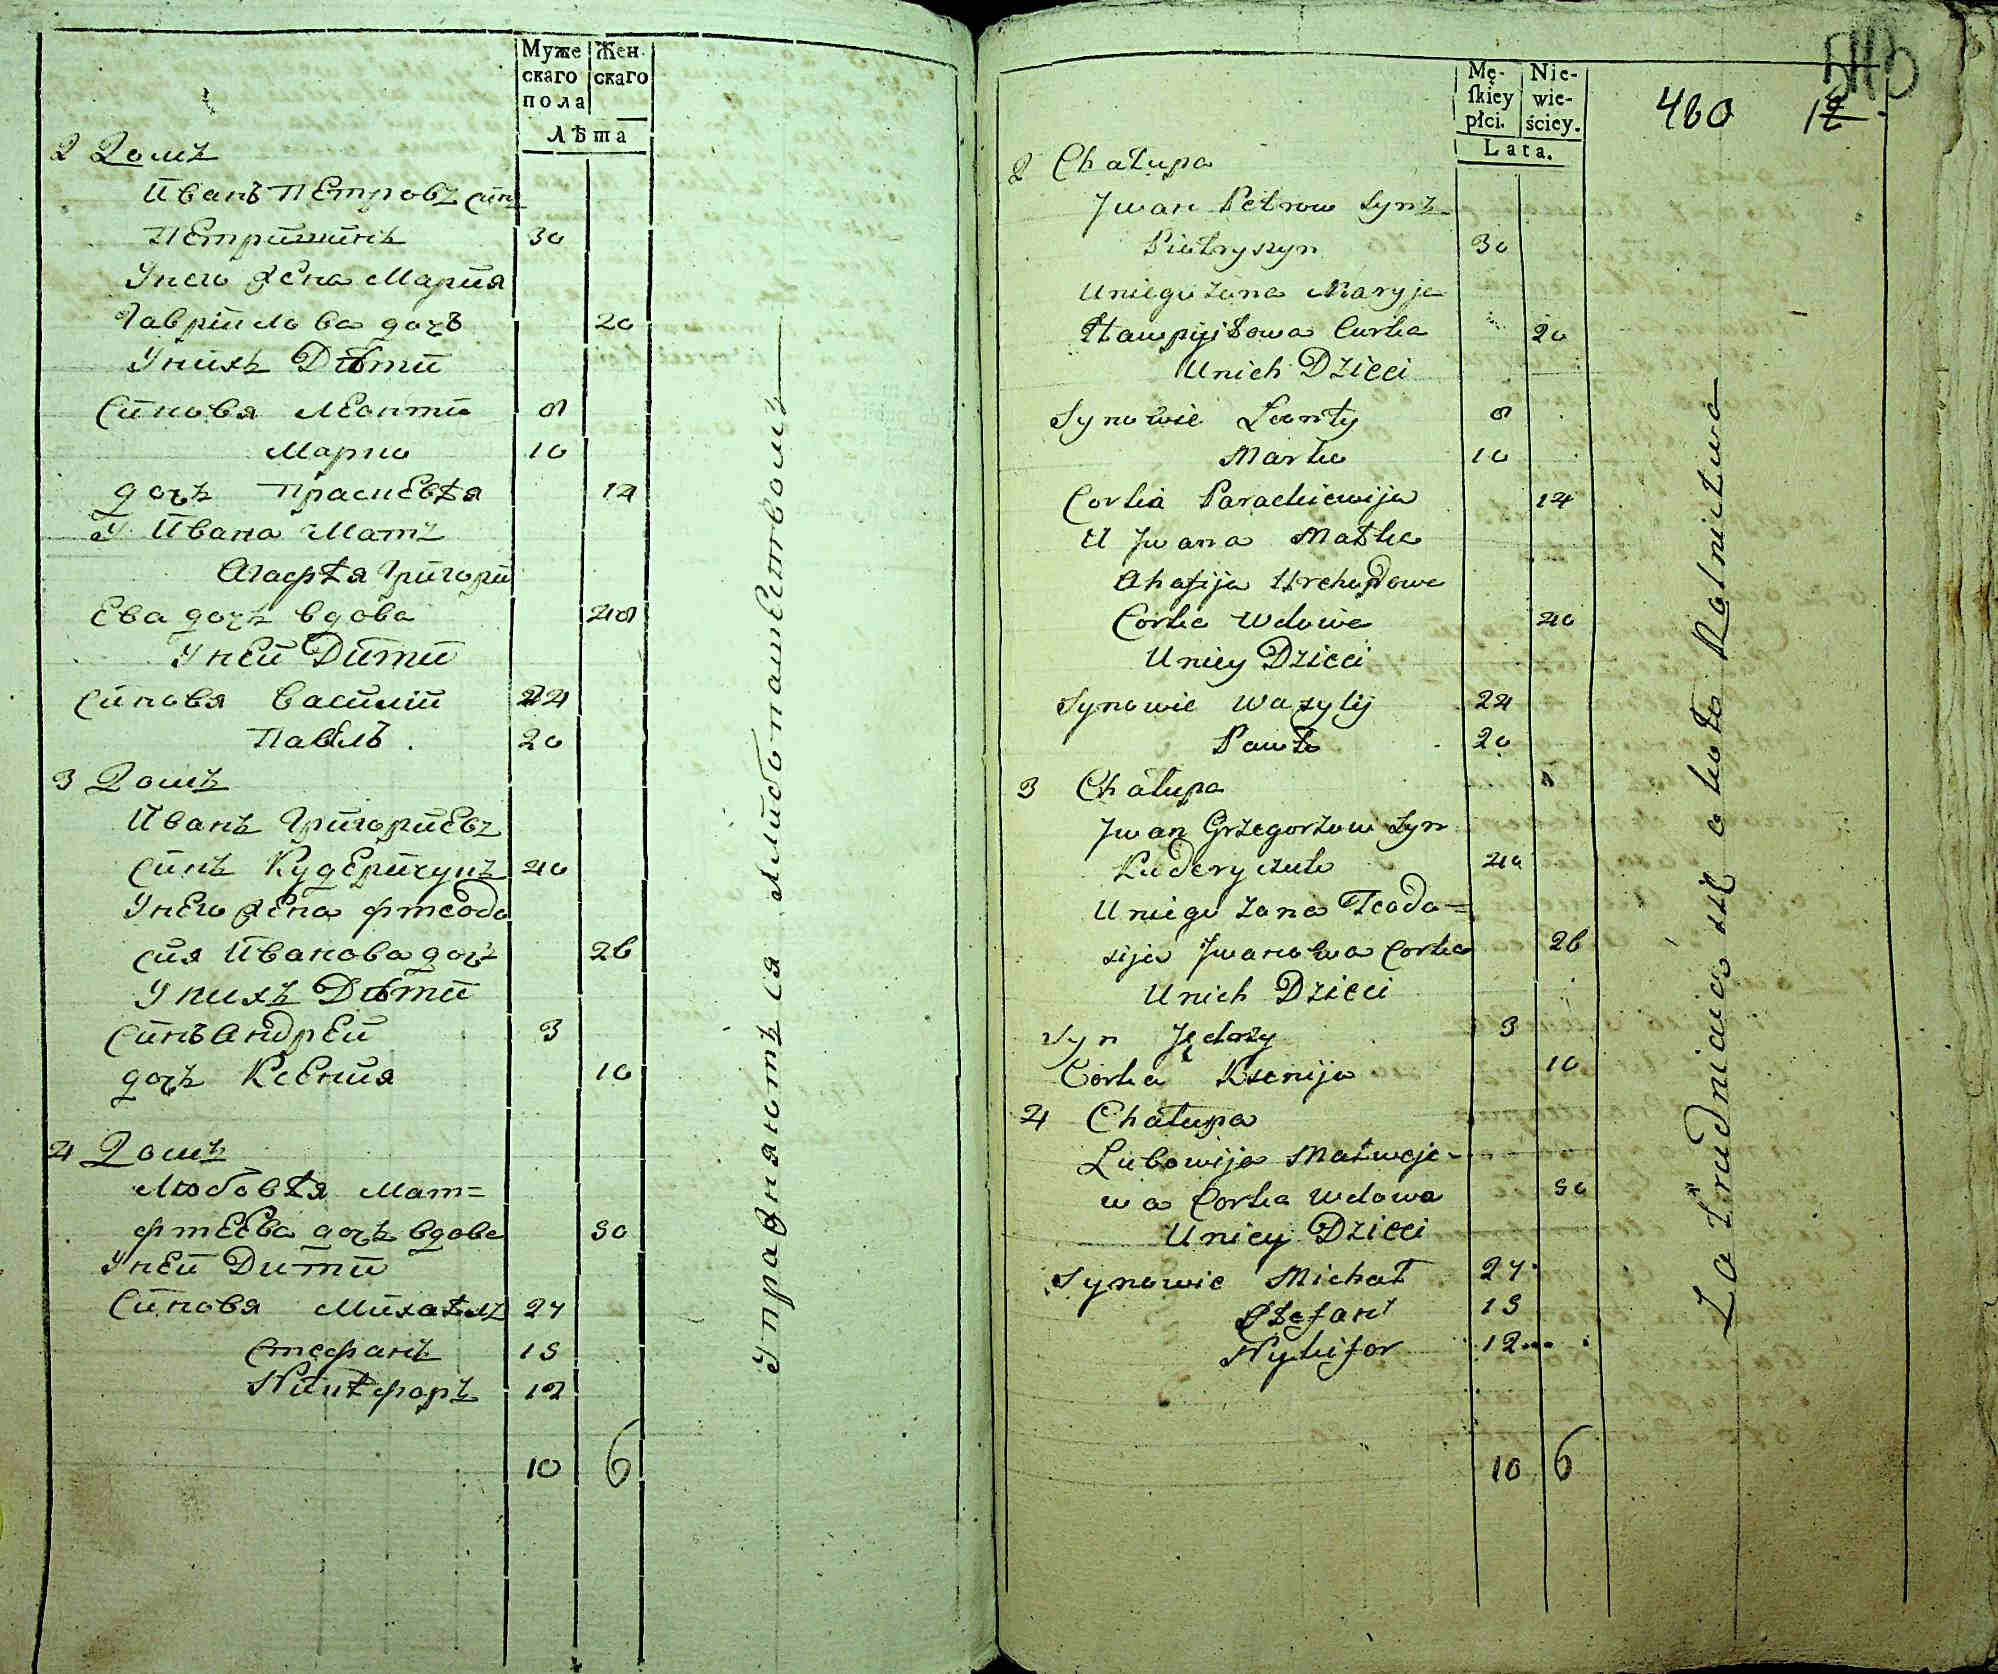 Муже Жен
скаго скаго
пола
Лѣта
2 Домъ
Иванъ Петровъ синъ
Петришинъ 30
У него жена Мария
Гавріилова дочъ 20
У нихъ Дѣти
Синовя Леонтий 8
Марко 10
дочъ Праскевѣя 14
У Ивана Матъ
Агафѣя Григори
ева дочъ вдова 48
У ней Дити
Синовя Василий 24
Павелъ 20
3 Домъ
Иванъ Григориевъ
синъ Кудеричукъ 40
У него жена Фтеодо
сия Иванова дочъ 26
У нихъ Дѣти
Синъ Андрей 3
дочъ Ксения 10
4 Домъ
Любовѣя Мат=
фтеева дочъ вдова 50
У ней Дити
Синовя Михаѣлъ 27
Стефанъ 15
Никѣфоръ 12
10 6
Упражняютъся хлибопашеством
Mę- Nie-
ſkiey wie-
płci. ściey.
Lata.
460
2 Chałupa
Jwan Petrow Syn
Pietryszyn 30
U niego żona Maryja
Corka 20
U nich Dzieci
Synowie Leonty 8
Marko 10
Corka Paraskiewija 14
U Jwana Matka
Ahafija
Corka Wdowa 48
U niey Dzieci
Synowie Wasylij 24
Pawło 20
3 Chałupa
Jwan Grzegorzow Syn
Kuderyczuk 40
U niego żona Teodo=
sija Jwanowa Corka 26
U nich Dzieci
Syn Jędrzy 3
Corka Ksenija 10
4 Chałupa
Lubowija Matweje-
wa Corka Wdowa 50
U niey Dzieci
Synowie Michał 27
Stefan 15
Nykifor 12
10 6
Zatrudniaią się około Rolnictwa